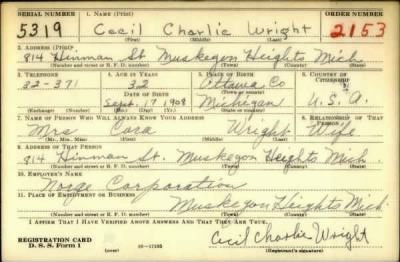 SERIAL NUMBER 1. NAME (Print) ORDER NUMBER
5319 Cecil Charlie Wright 2153
(First) (Middle) (Last)
2. ADDRESS (Print)
814 Hinman St. Muskegon Heights Mich
(Number and street or R. F. D. number) (Town) (County) (State)
3. TELEPHONE 4. AGE IN YEARS 5. PLACE OF BIRTH 6. COUNTRY OF CITIZENSHIP
32-371 32 Ottawa Co
DATE OF BIRTH (Town or county)
Sept. 17 1908 Michigan U.S.A.
(Exchange) (Number) (Mo.) (Day) (Yr.) (State or country)
7. NAME OF PERSON WHO WILL ALWAYS KNOW YOUR ADDRESS 8. RELATIONSHIP OF THAT PERSON
Mrs. Cora Wright Wife
(Mr., Mrs., Miss) (First) (Middle) (Last)
9. ADDRESS OF THAT PERSON
814 Hinman St. Muskegon Heights Mich.
(Number and street or R. F. D. number) (Town) (County) (State)
10. EMPLOYER'S NAME
Norge Corporation
11. PLACE OF EMPLOYMENT OR BUSINESS
Muskegon Heights Mich
(Number and street or R. F. D. number) (Town) (County) (State)
I AFFIRM THAT I HAVE VERIFIED ABOVE ANSWERS AND THAT THEY ARE TRUE.
REGISTRATION CARD
D. S. S. Form 1 (over) 16-17105 Cecil Charlie Wright
(Registrant's signature)